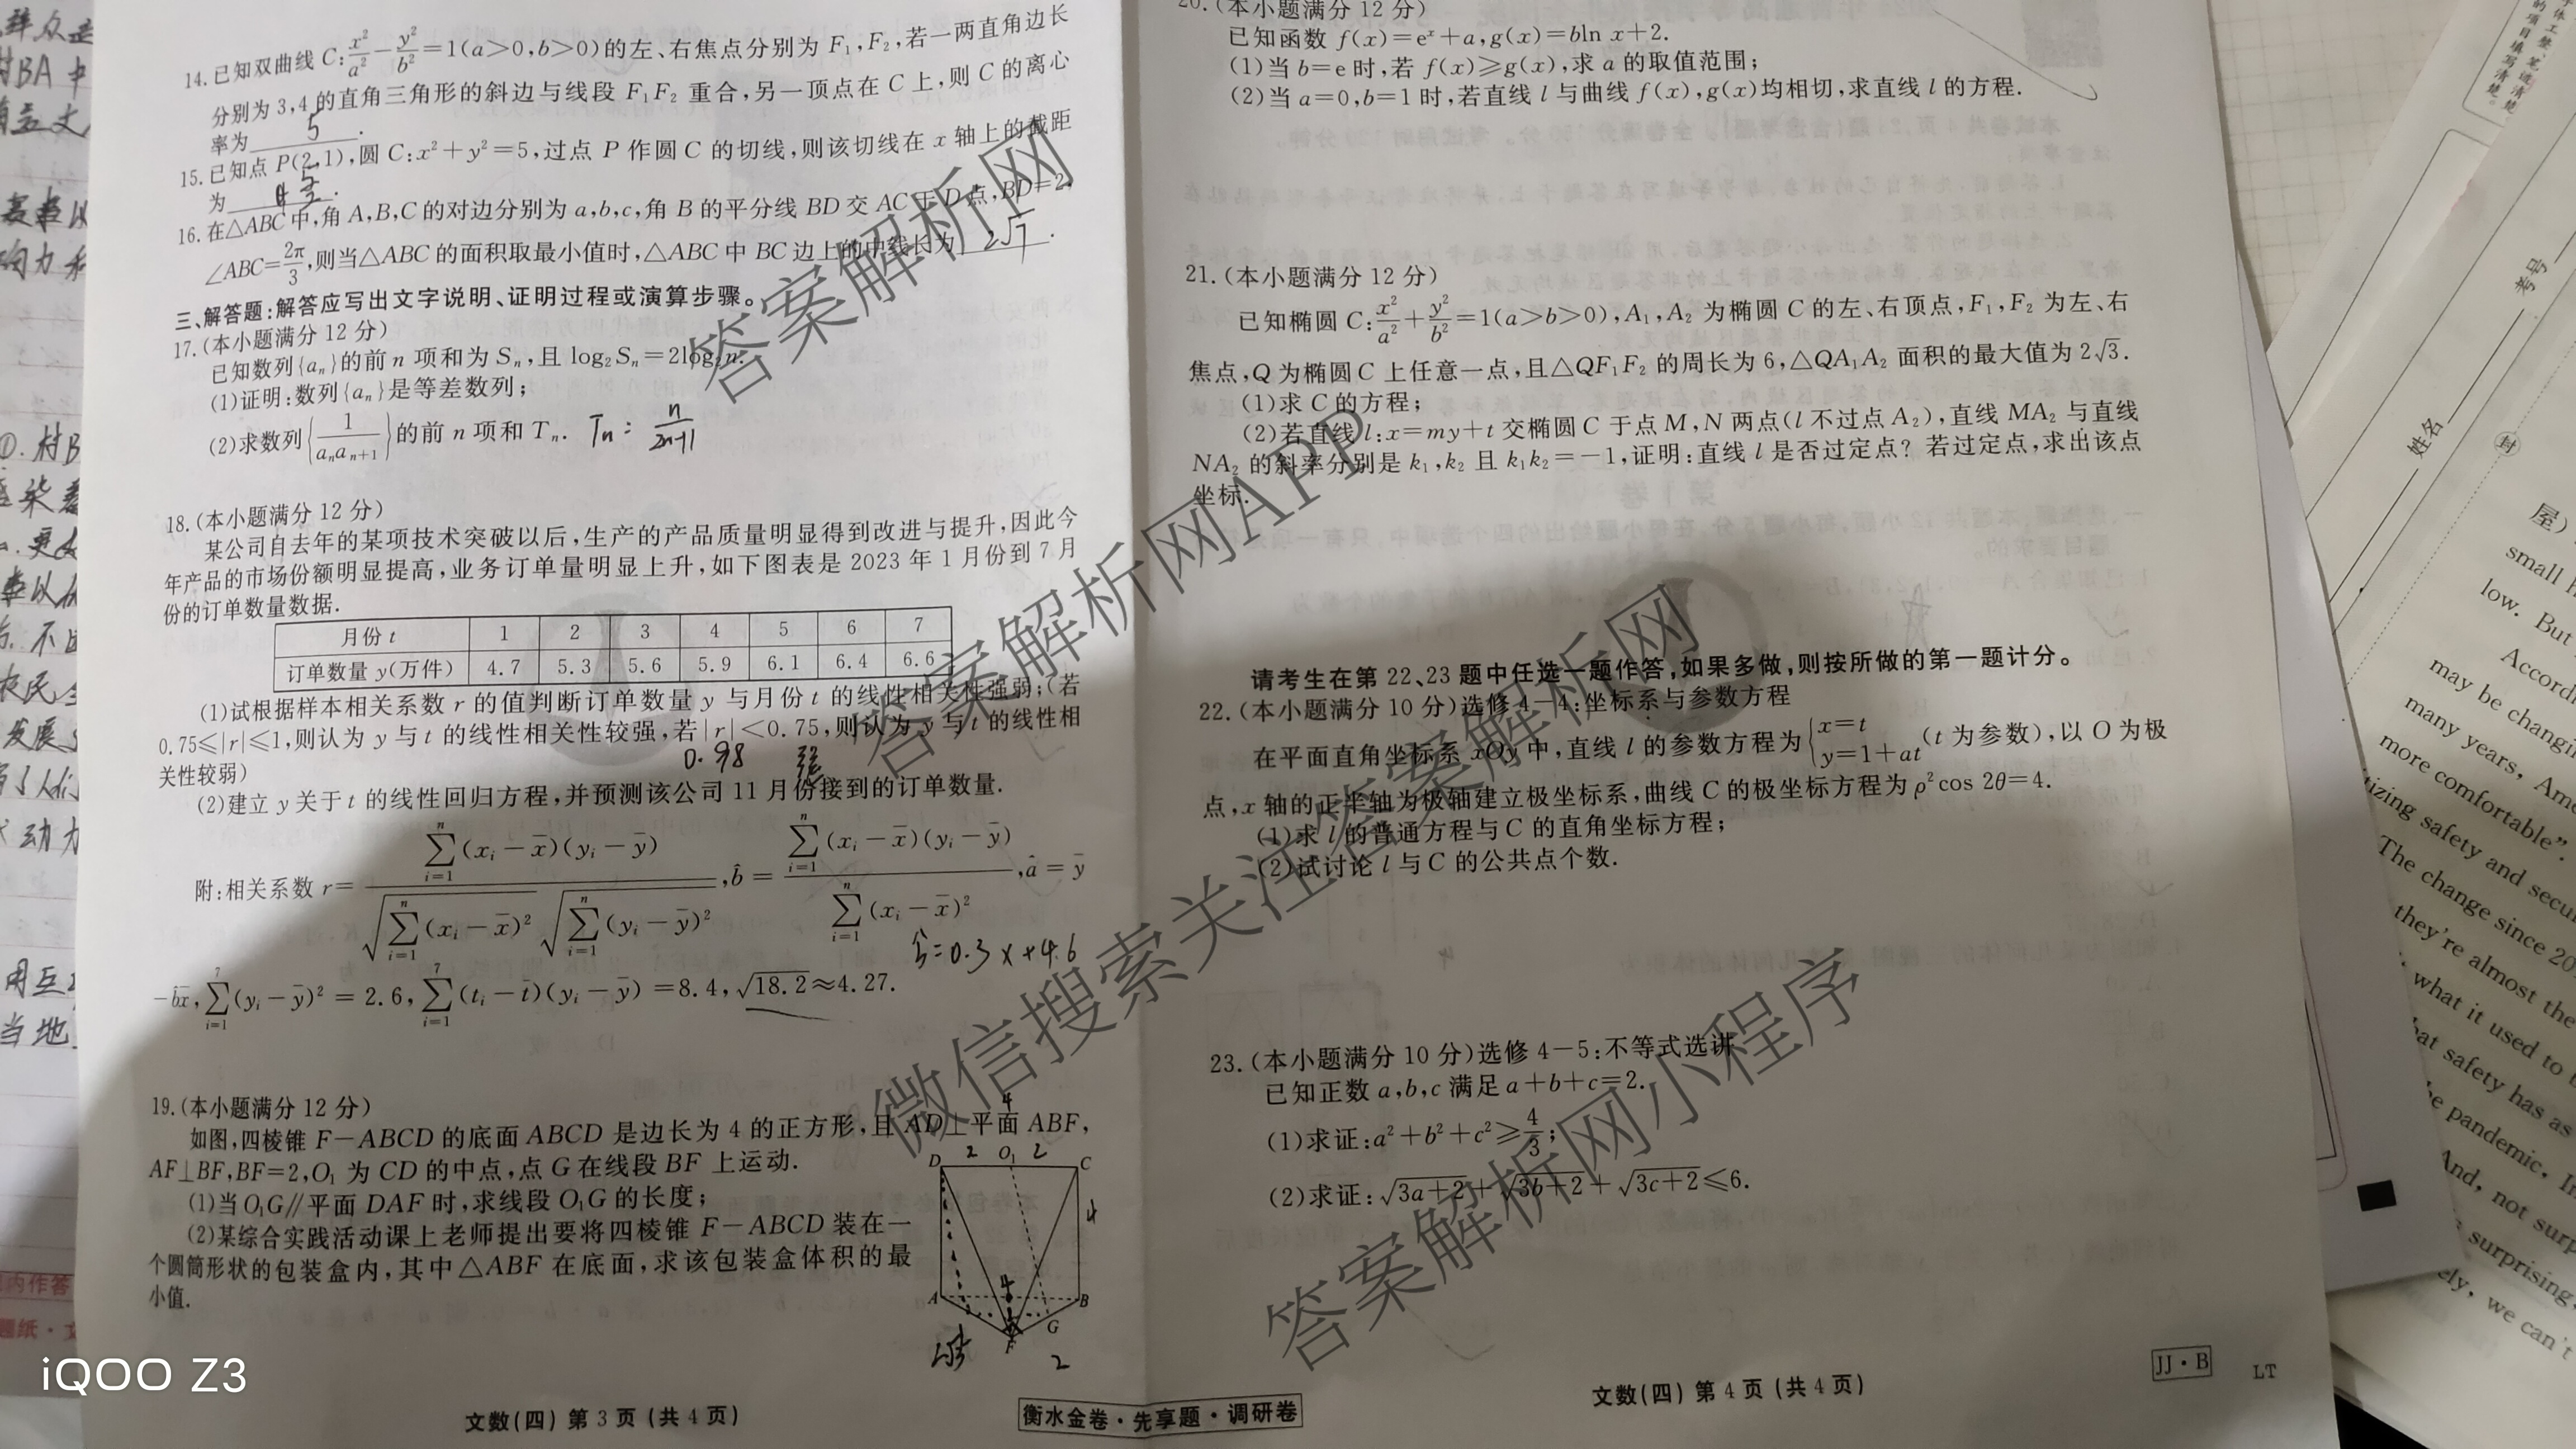 14.已知双曲线 C:x²/a²−y²/b²=1(a>0,b>0)的左、右焦点分别为 F₁,F₂,若一两直角边长
分别为 3,4 的直角三角形的斜边与线段 F₁F₂ 重合,另一顶点在 C 上,则 C 的离心
率为 5 .
15.已知点 P(2,1),圆 C:x²+y²=5,过点 P 作圆 C 的切线,则该切线在 x 轴上的截距
为
16.在△ABC 中,角 A,B,C 的对边分别为 a,b,c,角 B 的平分线 BD 交 AC 于 D 点,BD=2,
∠ABC=2π/3,则当△ABC 的面积取最小值时,△ABC 中 BC 边上的中线长为 2√7 .
三、解答题:解答应写出文字说明、证明过程或演算步骤。
17.(本小题满分 12 分)
已知数列{aₙ}的前 n 项和为 Sₙ,且 log₂Sₙ=2log₂n.
(1)证明:数列{aₙ}是等差数列;
(2)求数列{1/(aₙaₙ₊₁)}的前 n 项和 Tₙ. Tn: n/(2n+1)
18.(本小题满分 12 分)
某公司自去年的某项技术突破以后,生产的产品质量明显得到改进与提升,因此今
年产品的市场份额明显提高,业务订单量明显上升,如下图表是 2023 年 1 月份到 7 月
份的订单数量数据.
月份 t 1 2 3 4 5 6 7
订单数量 y(万件) 4.7 5.3 5.6 5.9 6.1 6.4 6.6
(1)试根据样本相关系数 r 的值判断订单数量 y 与月份 t 的线性相关性强弱;(若
0.75≤|r|≤1,则认为 y 与 t 的线性相关性较强,若|r|<0.75,则认为 y 与 t 的线性相
关性较弱)
0.98 强
(2)建立 y 关于 t 的线性回归方程,并预测该公司 11 月份接到的订单数量.
附:相关系数 r=∑ⁿᵢ₌₁(xᵢ−x̄)(yᵢ−ȳ)/(√∑ⁿᵢ₌₁(xᵢ−x̄)² √∑ⁿᵢ₌₁(yᵢ−ȳ)²),b̂=∑ⁿᵢ₌₁(xᵢ−x̄)(yᵢ−ȳ)/∑ⁿᵢ₌₁(xᵢ−x̄)²,â=ȳ
=0.3x+4.6
−b̂x̄,∑⁷ᵢ₌₁(yᵢ−ȳ)²=2.6,∑⁷ᵢ₌₁(tᵢ−t̄)(yᵢ−ȳ)=8.4,√18.2≈4.27.
19.(本小题满分 12 分)
如图,四棱锥 F−ABCD 的底面 ABCD 是边长为 4 的正方形,且 AD⊥平面 ABF,
AF⊥BF,BF=2,O₁ 为 CD 的中点,点 G 在线段 BF 上运动.
(1)当 O₁G∥平面 DAF 时,求线段 O₁G 的长度;
(2)某综合实践活动课上老师提出要将四棱锥 F−ABCD 装在一
个圆筒形状的包装盒内,其中△ABF 在底面,求该包装盒体积的最
小值.
4
D 2 O₁ 2 C
4
4
A B
G
F
2
文数(四) 第 3 页 (共 4 页)
20.(本小题满分 12 分)
已知函数 f(x)=eˣ+a,g(x)=bln x+2.
(1)当 b=e 时,若 f(x)≥g(x),求 a 的取值范围;
(2)当 a=0,b=1 时,若直线 l 与曲线 f(x),g(x)均相切,求直线 l 的方程.
21.(本小题满分 12 分)
已知椭圆 C:x²/a²+y²/b²=1(a>b>0),A₁,A₂ 为椭圆 C 的左、右顶点,F₁,F₂ 为左、右
焦点,Q 为椭圆 C 上任意一点,且△QF₁F₂ 的周长为 6,△QA₁A₂ 面积的最大值为 2√3.
(1)求 C 的方程;
(2)若直线 l:x=my+t 交椭圆 C 于点 M,N 两点(l 不过点 A₂),直线 MA₂ 与直线
NA₂ 的斜率分别是 k₁,k₂ 且 k₁k₂=−1,证明:直线 l 是否过定点?若过定点,求出该点
坐标.
请考生在第 22、23 题中任选一题作答,如果多做,则按所做的第一题计分。
22.(本小题满分 10 分)选修 4−4:坐标系与参数方程
在平面直角坐标系 xOy 中,直线 l 的参数方程为{x=t y=1+at(t 为参数),以 O 为极
点,x 轴的正半轴为极轴建立极坐标系,曲线 C 的极坐标方程为 ρ²cos 2θ=4.
(1)求 l 的普通方程与 C 的直角坐标方程;
(2)试讨论 l 与 C 的公共点个数.
23.(本小题满分 10 分)选修 4−5:不等式选讲
已知正数 a,b,c 满足 a+b+c=2.
(1)求证:a²+b²+c²≥4/3;
(2)求证:√(3a+2)+√(3b+2)+√(3c+2)≤6.
衡水金卷·先享题·调研卷
文数(四) 第 4 页 (共 4 页)
JJ·B
LT
答案解析网
答案解析网APP
微信搜索关注答案解析网
答案解析网小程序
iQOO Z3
考号
姓名
封
small
low. But
may be changing
many years, Ame
more comfortable".
izing safety and secu
The change since 20
they're almost the
what it used to
at safety has as
e pandemic, In
And, not surp
surprising,
ely, we can't